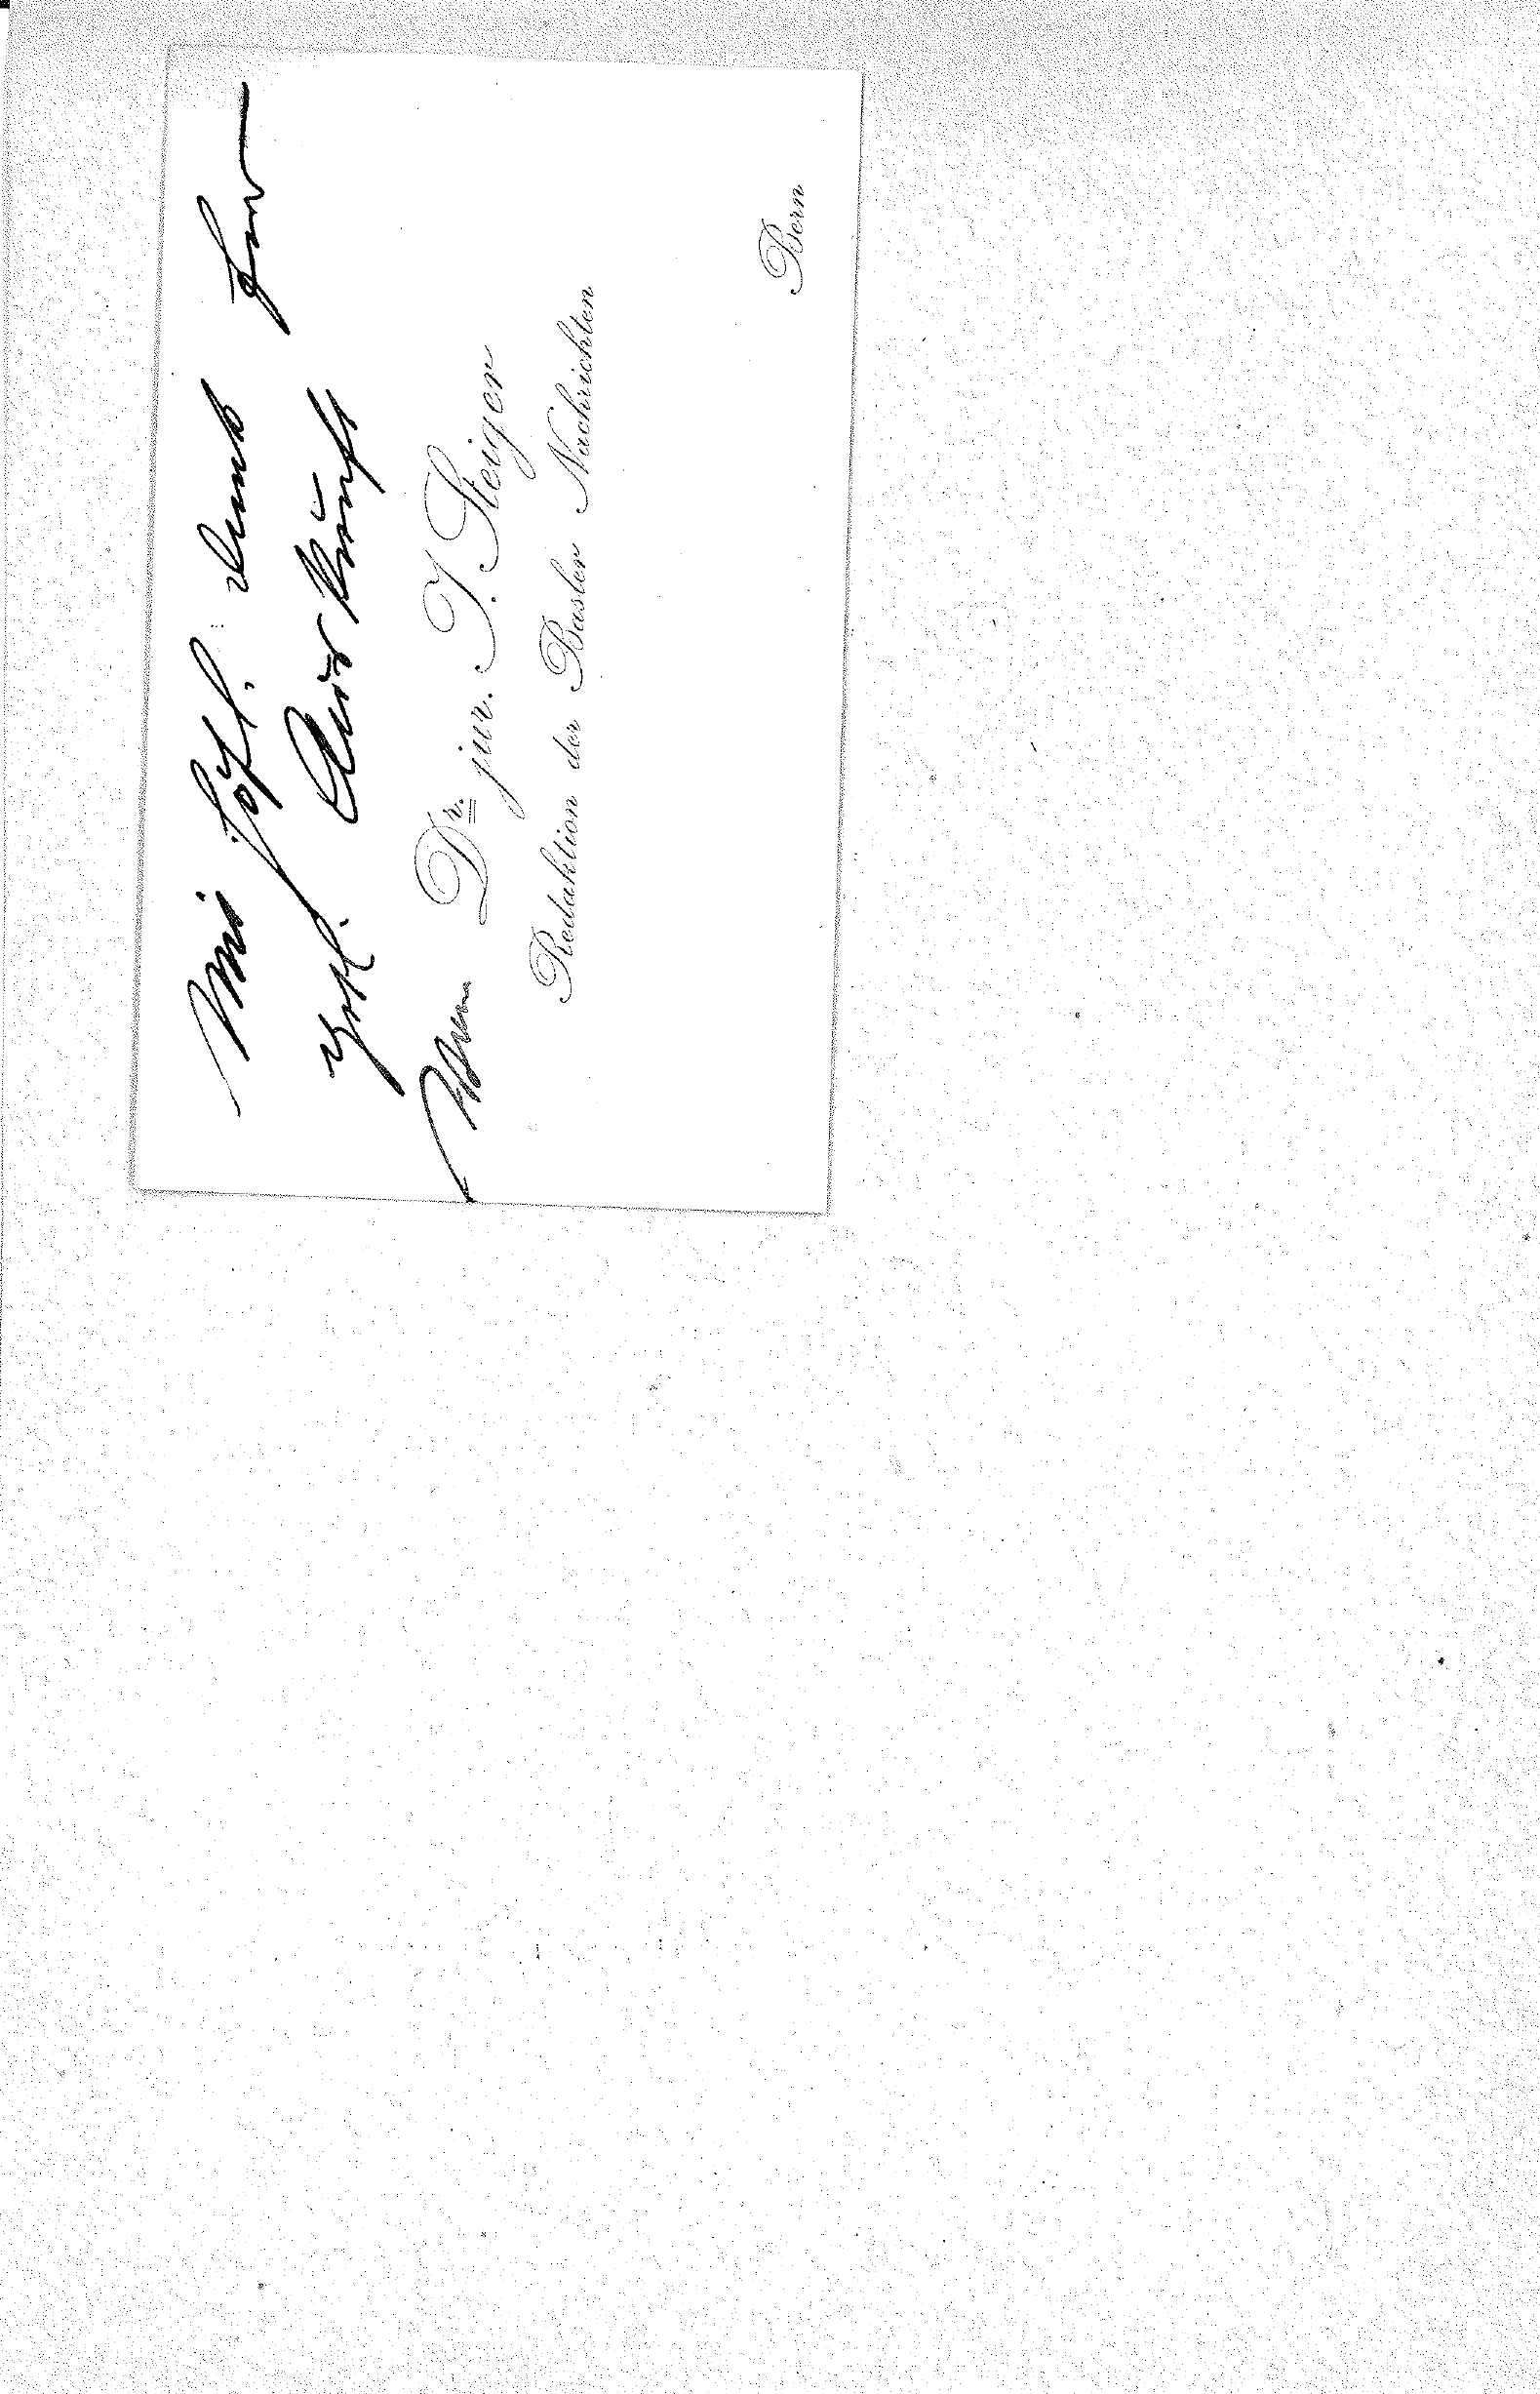 Mit höfl. Dank für
gefl. Auskunft
Dr. jur. J. Steiger
Redaktion der Basler Nachrichten
Bern